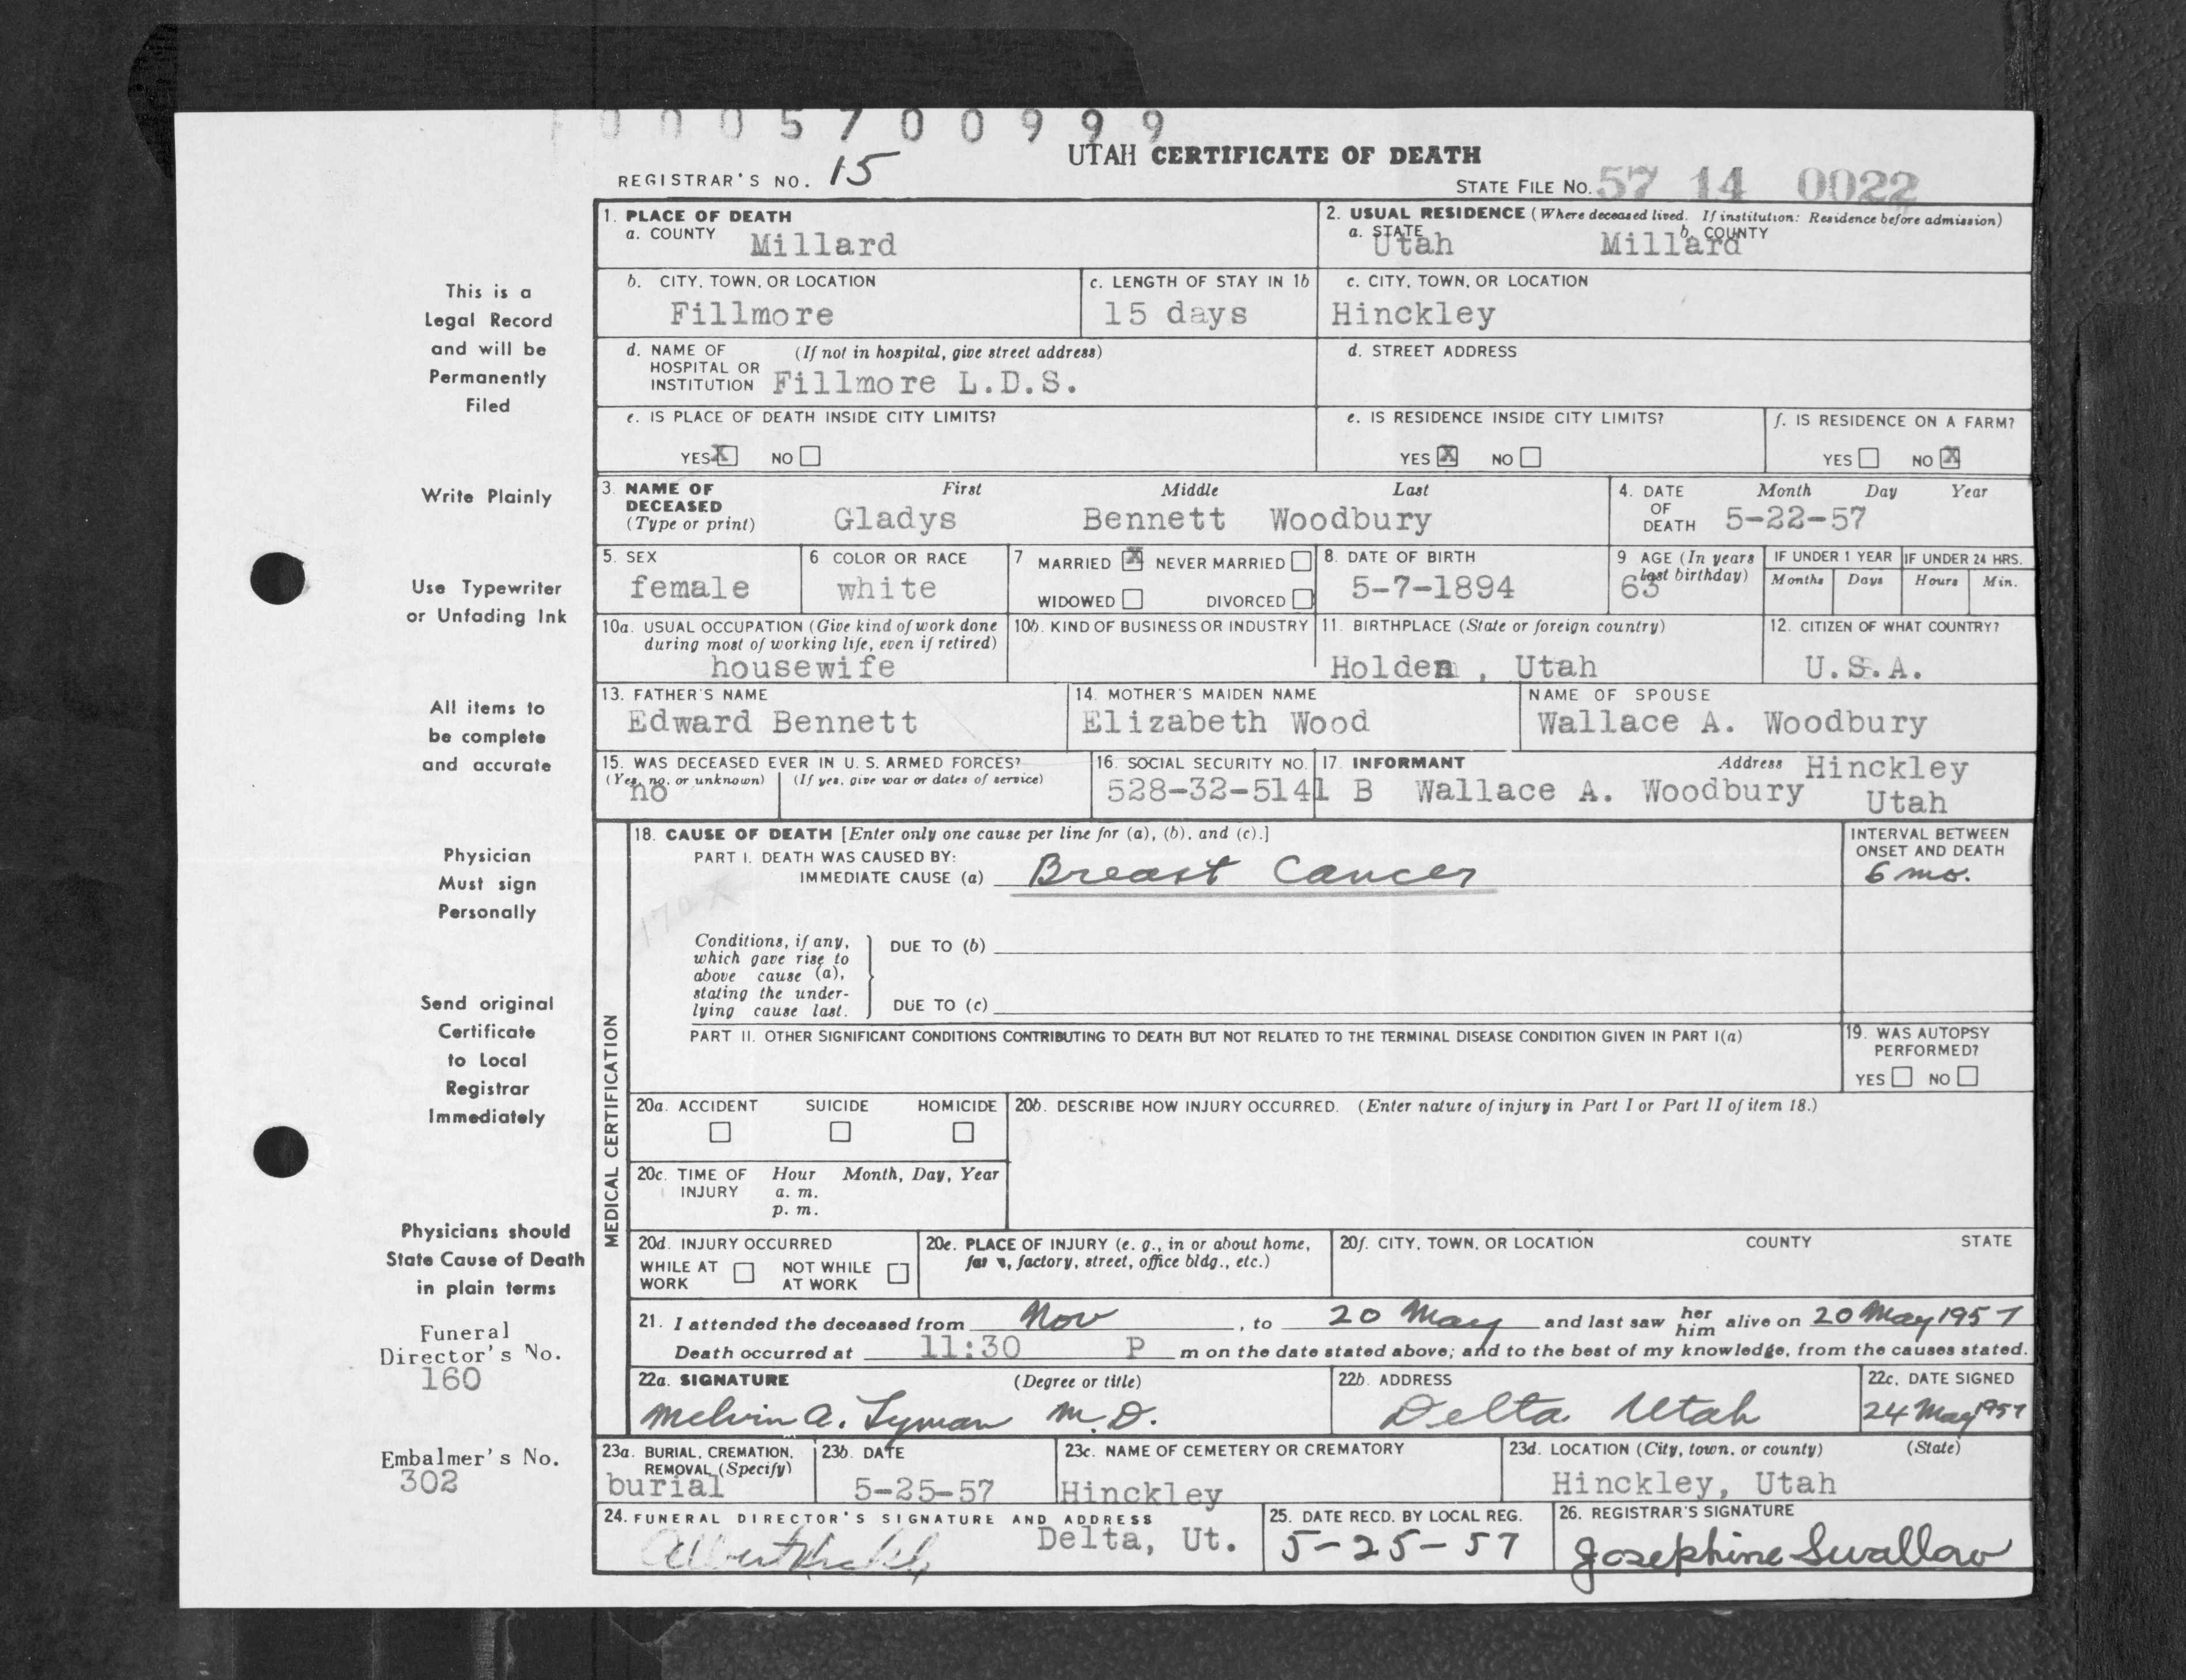 0 0 0 5 7 0 0 9 9 9
UTAH CERTIFICATE OF DEATH
REGISTRAR'S NO. 15
STATE FILE NO. 57 14 0022
1. PLACE OF DEATH
a. COUNTY Millard
2. USUAL RESIDENCE (Where deceased lived. If institution: Residence before admission)
a. STATE Utah b. COUNTY Millard
b. CITY, TOWN, OR LOCATION
Fillmore
c. LENGTH OF STAY IN 1b
15 days
c. CITY, TOWN, OR LOCATION
Hinckley
d. NAME OF (If not in hospital, give street address)
HOSPITAL OR
INSTITUTION Fillmore L.D.S.
d. STREET ADDRESS
e. IS PLACE OF DEATH INSIDE CITY LIMITS?
YES X NO
e. IS RESIDENCE INSIDE CITY LIMITS?
YES X NO
f. IS RESIDENCE ON A FARM?
YES NO X
3. NAME OF DECEASED (Type or print)
First Middle Last
Gladys Bennett Woodbury
4. DATE OF DEATH
Month Day Year
5-22-57
5. SEX
female
6 COLOR OR RACE
white
7 MARRIED X NEVER MARRIED
WIDOWED DIVORCED
8. DATE OF BIRTH
5-7-1894
9 AGE (In years last birthday)
63
IF UNDER 1 YEAR
Months Days
IF UNDER 24 HRS.
Hours Min.
10a. USUAL OCCUPATION (Give kind of work done
during most of working life, even if retired)
housewife
10b. KIND OF BUSINESS OR INDUSTRY
11. BIRTHPLACE (State or foreign country)
Holden , Utah
12. CITIZEN OF WHAT COUNTRY?
U.S.A.
13. FATHER'S NAME
Edward Bennett
14. MOTHER'S MAIDEN NAME
Elizabeth Wood
NAME OF SPOUSE
Wallace A. Woodbury
15. WAS DECEASED EVER IN U. S. ARMED FORCES?
(Yes, no, or unknown) (If yes, give war or dates of service)
no
16. SOCIAL SECURITY NO.
528-32-5141 B
17. INFORMANT Address
Wallace A. Woodbury Hinckley
Utah
MEDICAL CERTIFICATION
18. CAUSE OF DEATH [Enter only one cause per line for (a), (b), and (c).]
PART I. DEATH WAS CAUSED BY:
IMMEDIATE CAUSE (a) Breast Cancer
INTERVAL BETWEEN
ONSET AND DEATH
6 mo.
170X
Conditions, if any,
which gave rise to
above cause (a),
stating the under-
lying cause last.
DUE TO (b)
DUE TO (c)
PART II. OTHER SIGNIFICANT CONDITIONS CONTRIBUTING TO DEATH BUT NOT RELATED TO THE TERMINAL DISEASE CONDITION GIVEN IN PART I(a)
19. WAS AUTOPSY
PERFORMED?
YES NO
20a. ACCIDENT SUICIDE HOMICIDE
20b. DESCRIBE HOW INJURY OCCURRED. (Enter nature of injury in Part I or Part II of item 18.)
20c. TIME OF INJURY
Hour Month, Day, Year
a. m.
p. m.
20d. INJURY OCCURRED
WHILE AT WORK NOT WHILE AT WORK
20e. PLACE OF INJURY (e. g., in or about home,
factory, street, office bldg., etc.)
20f. CITY, TOWN, OR LOCATION COUNTY STATE
21. I attended the deceased from Nov , to 20 May and last saw her him alive on 20 May 1957
Death occurred at 11:30 P m on the date stated above; and to the best of my knowledge, from the causes stated.
22a. SIGNATURE (Degree or title)
Melvin A. Lyman M.D.
22b. ADDRESS
Delta Utah
22c. DATE SIGNED
24 May 1957
23a. BURIAL, CREMATION,
REMOVAL (Specify)
burial
23b. DATE
5-25-57
23c. NAME OF CEMETERY OR CREMATORY
Hinckley
23d. LOCATION (City, town, or county) (State)
Hinckley, Utah
24. FUNERAL DIRECTOR'S SIGNATURE AND ADDRESS
Delta, Ut.
25. DATE RECD. BY LOCAL REG.
5-25-57
26. REGISTRAR'S SIGNATURE
Josephine Swallow
This is a
Legal Record
and will be
Permanently
Filed
Write Plainly
Use Typewriter
or Unfading Ink
All items to
be complete
and accurate
Physician
Must sign
Personally
Send original
Certificate
to Local
Registrar
Immediately
Physicians should
State Cause of Death
in plain terms
Funeral
Director's No.
160
Embalmer's No.
302